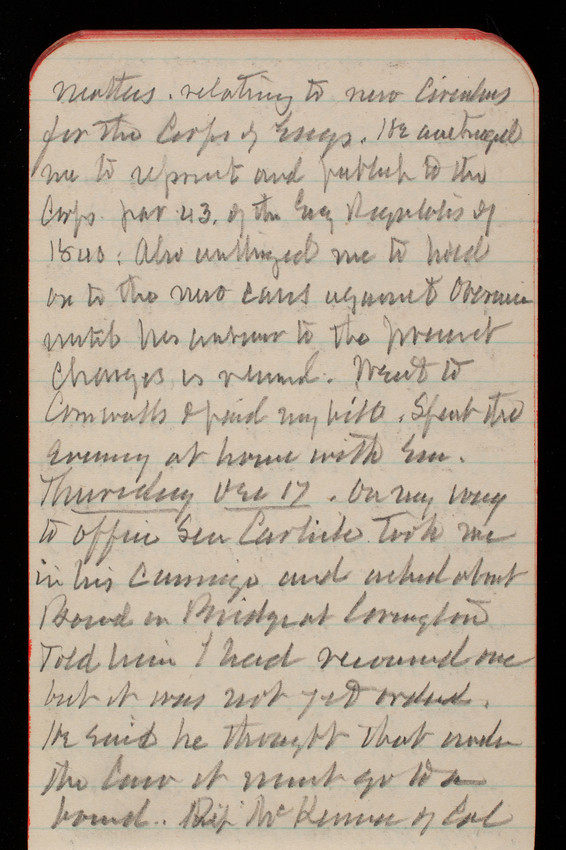 matters relating to new Circulars
for the Corps of Engs. He authorized
me to reprint and publish to the
Corps par 43. of the Eng Regulatis of
1840: Also authorized me to hold
on to the new case against
until his answer to the present
charges is received. Went to
Cornwalls & paid my bill. Spent the
Evening at home with Em.
Thursday Dec 17. On my way
to office Sen Carlisle took me
in his carriage and asked about
Board on Bridge at Covington
Told him I had recommd one
but it was not yet ordered.
He said he thought that under
the law it must go to a
board. Rep McKenna of Cal